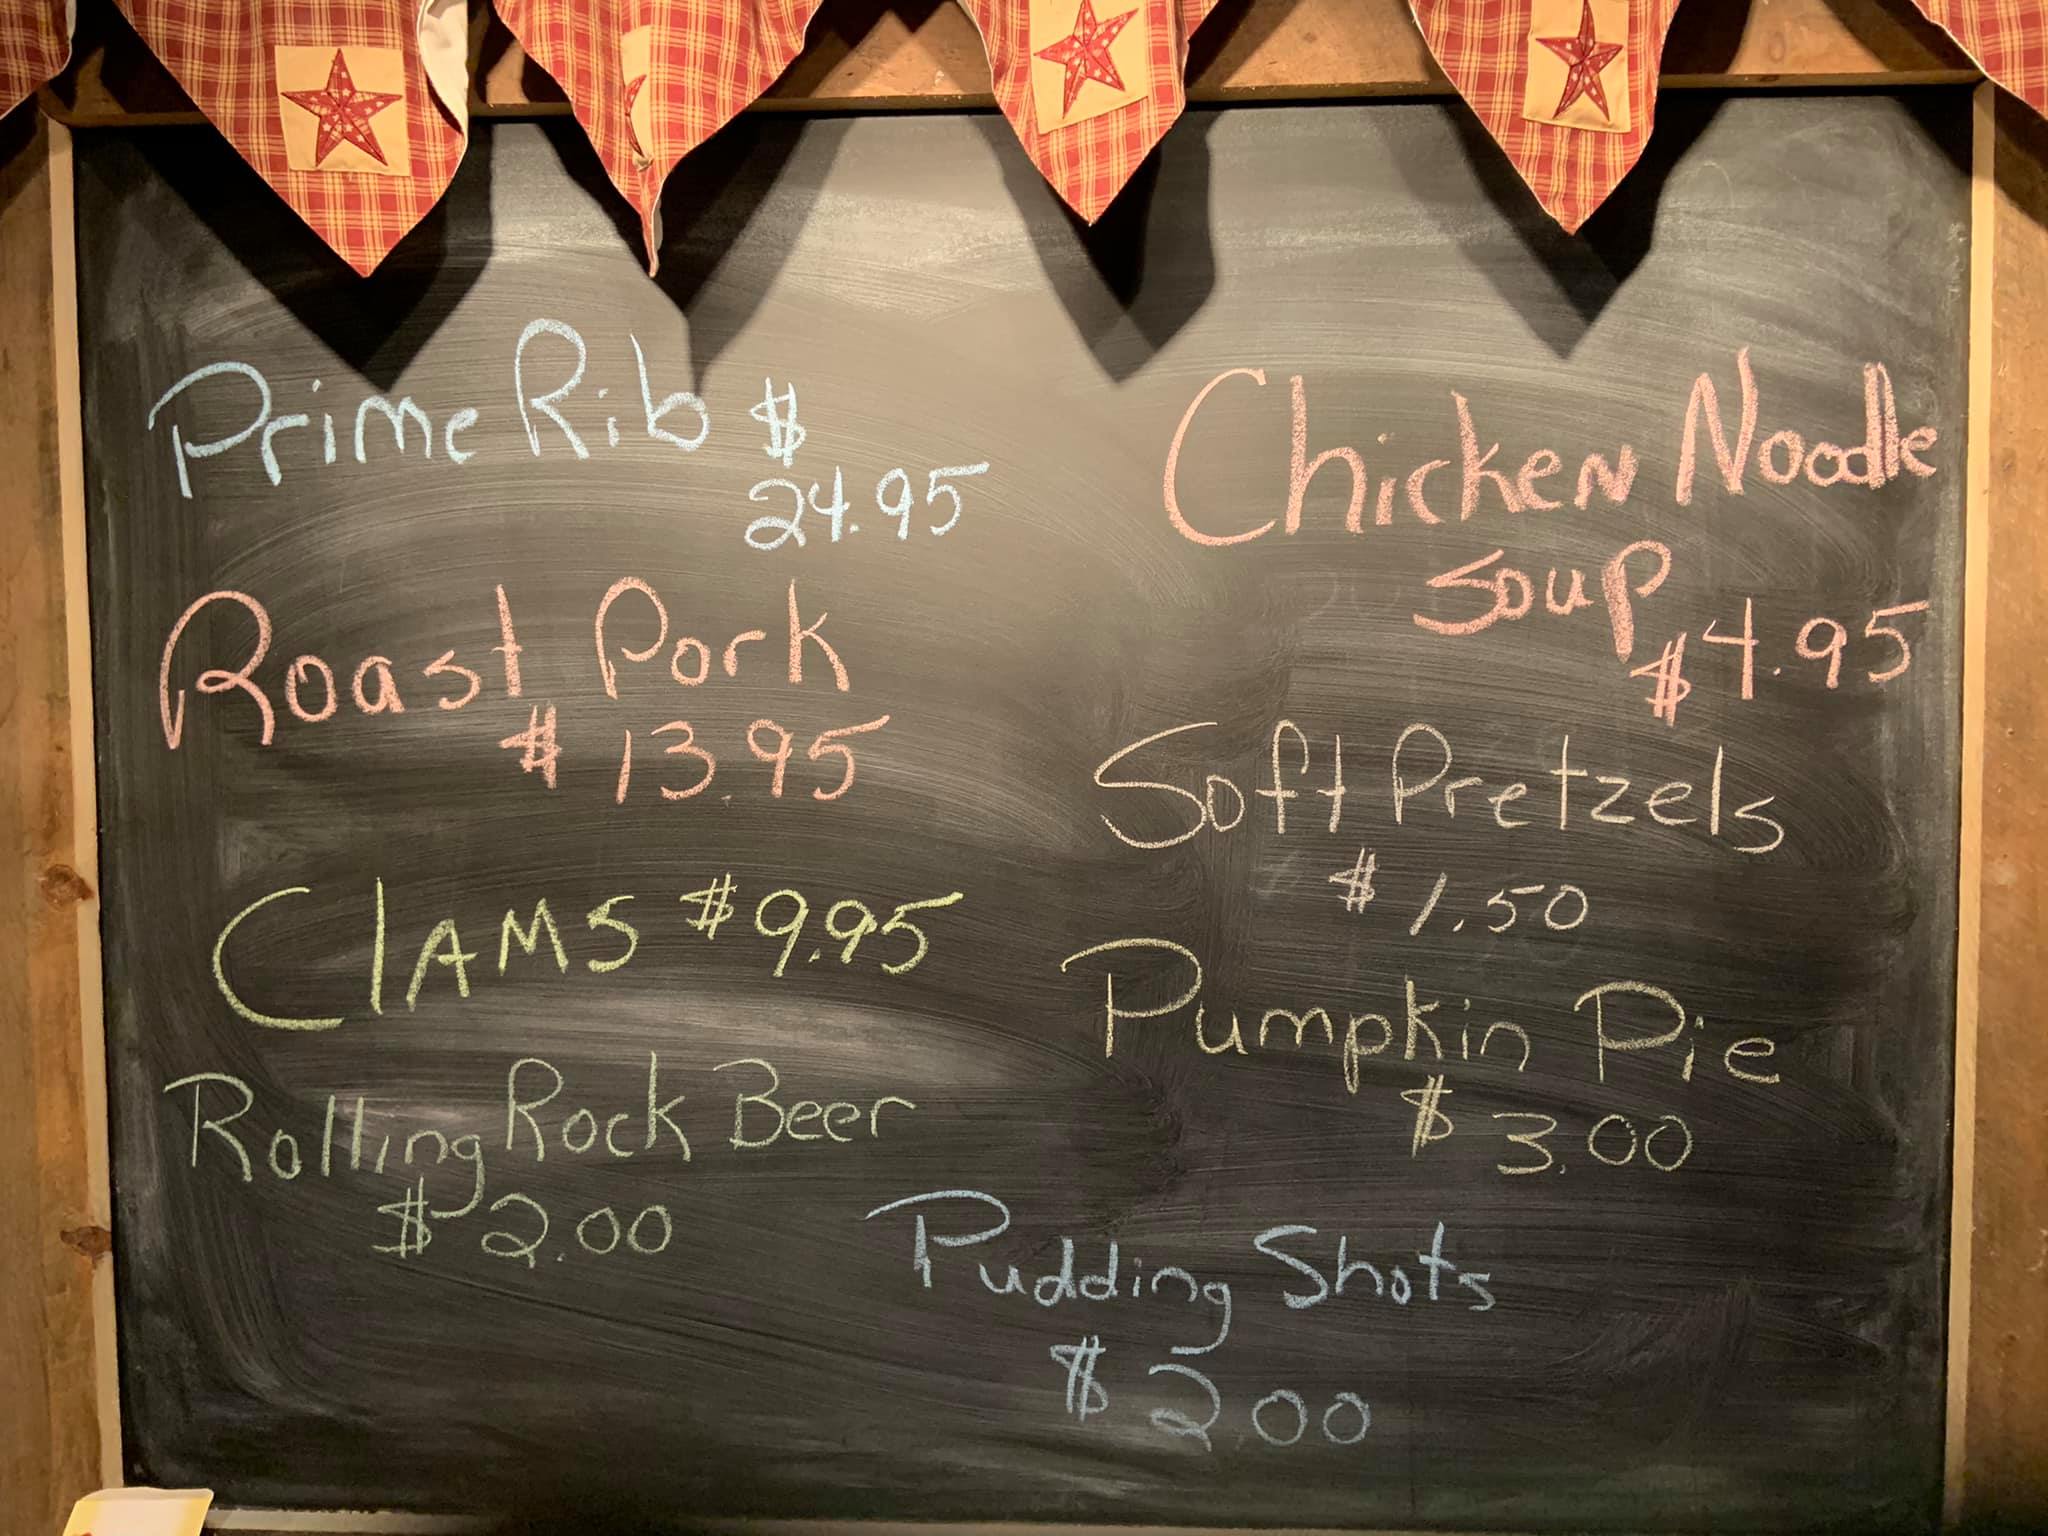 Prime Rib $
24.95
Roast Pork
$ 13.95
ClAMS $9.95
Rolling Rock Beer
$ 2.00
Chicken Noodle
Soup
$4.95
Soft Pretzels
$ 1.50
Pumpkin Pie
$ 3.00
Pudding Shots
$ 2.00